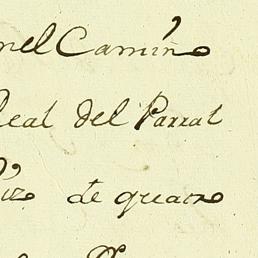 nel Camino
Real del Parral
de quatro